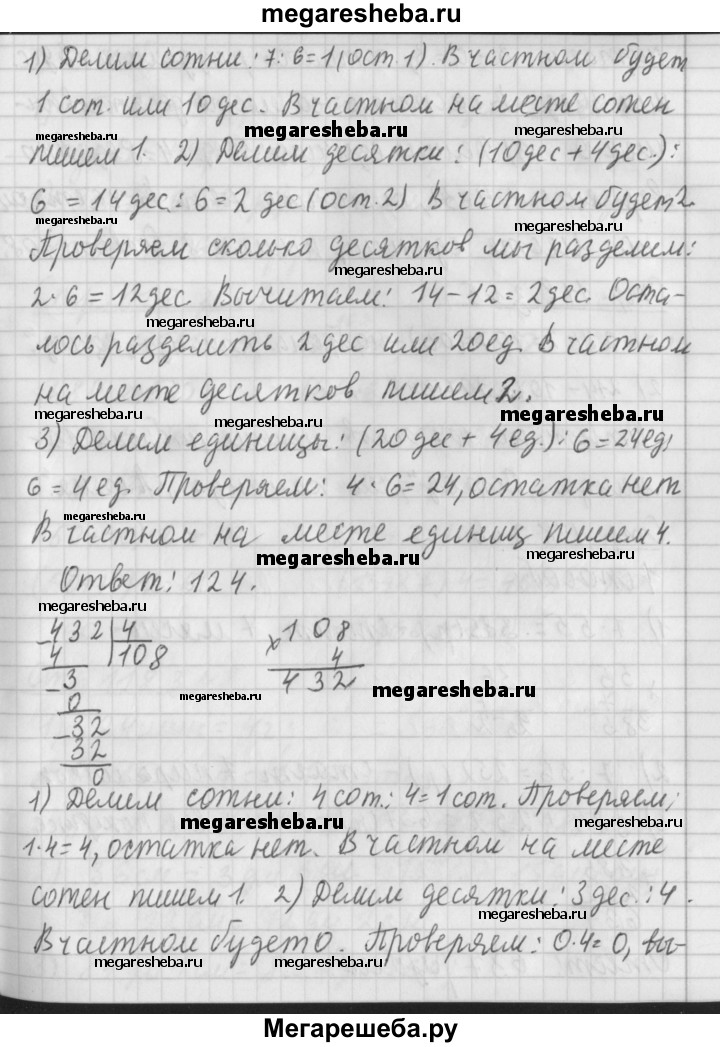 megaresheba.ru
1) Делим сотни: 7:6=1(ост.1). В частном будет
1 сот. или 10 дес. В частном на месте сотен
megaresheba.ru
megaresheba.ru
пишем 1. 2) Делим десятки: (10дес+4дес.):
megaresheba.ru
6 = 14дес:6=2 дес(ост.2) В частном будет 2.
megaresheba.ru
megaresheba.ru
Проверяем сколько десятков мы разделим:
megaresheba.ru
2·6=12дес. Вычитаем: 14-12=2дес. Оста-
megaresheba.ru
лось разделить 2 дес или 20ед. В частном
на месте десятков пишем 2.
megaresheba.ru
megaresheba.ru
3) Делим единицы: (20дес+4ед.):6=24ед:
megaresheba.ru
6=4ед. Проверяем: 4·6=24, остатка нет
megaresheba.ru
В частном на месте единиц пишем 4.
megaresheba.ru
megaresheba.ru
Ответ: 124.
megaresheba.ru
432 4 108
4 108 × 4
3 432
megaresheba.ru
megaresheba.ru
0
32
32
0
1) Делим сотни: 4 сот.:4=1 сот. Проверяем:
megaresheba.ru
megaresheba.ru
1·4=4, остатка нет. В частном на месте
сотен пишем 1. 2) Делим десятки: 3 дес.:4.
megaresheba.ru
В частном будет 0. Проверяем: 0·4=0, вы-
megaresheba.ru
megaresheba.ru
Мегарешеба.ру